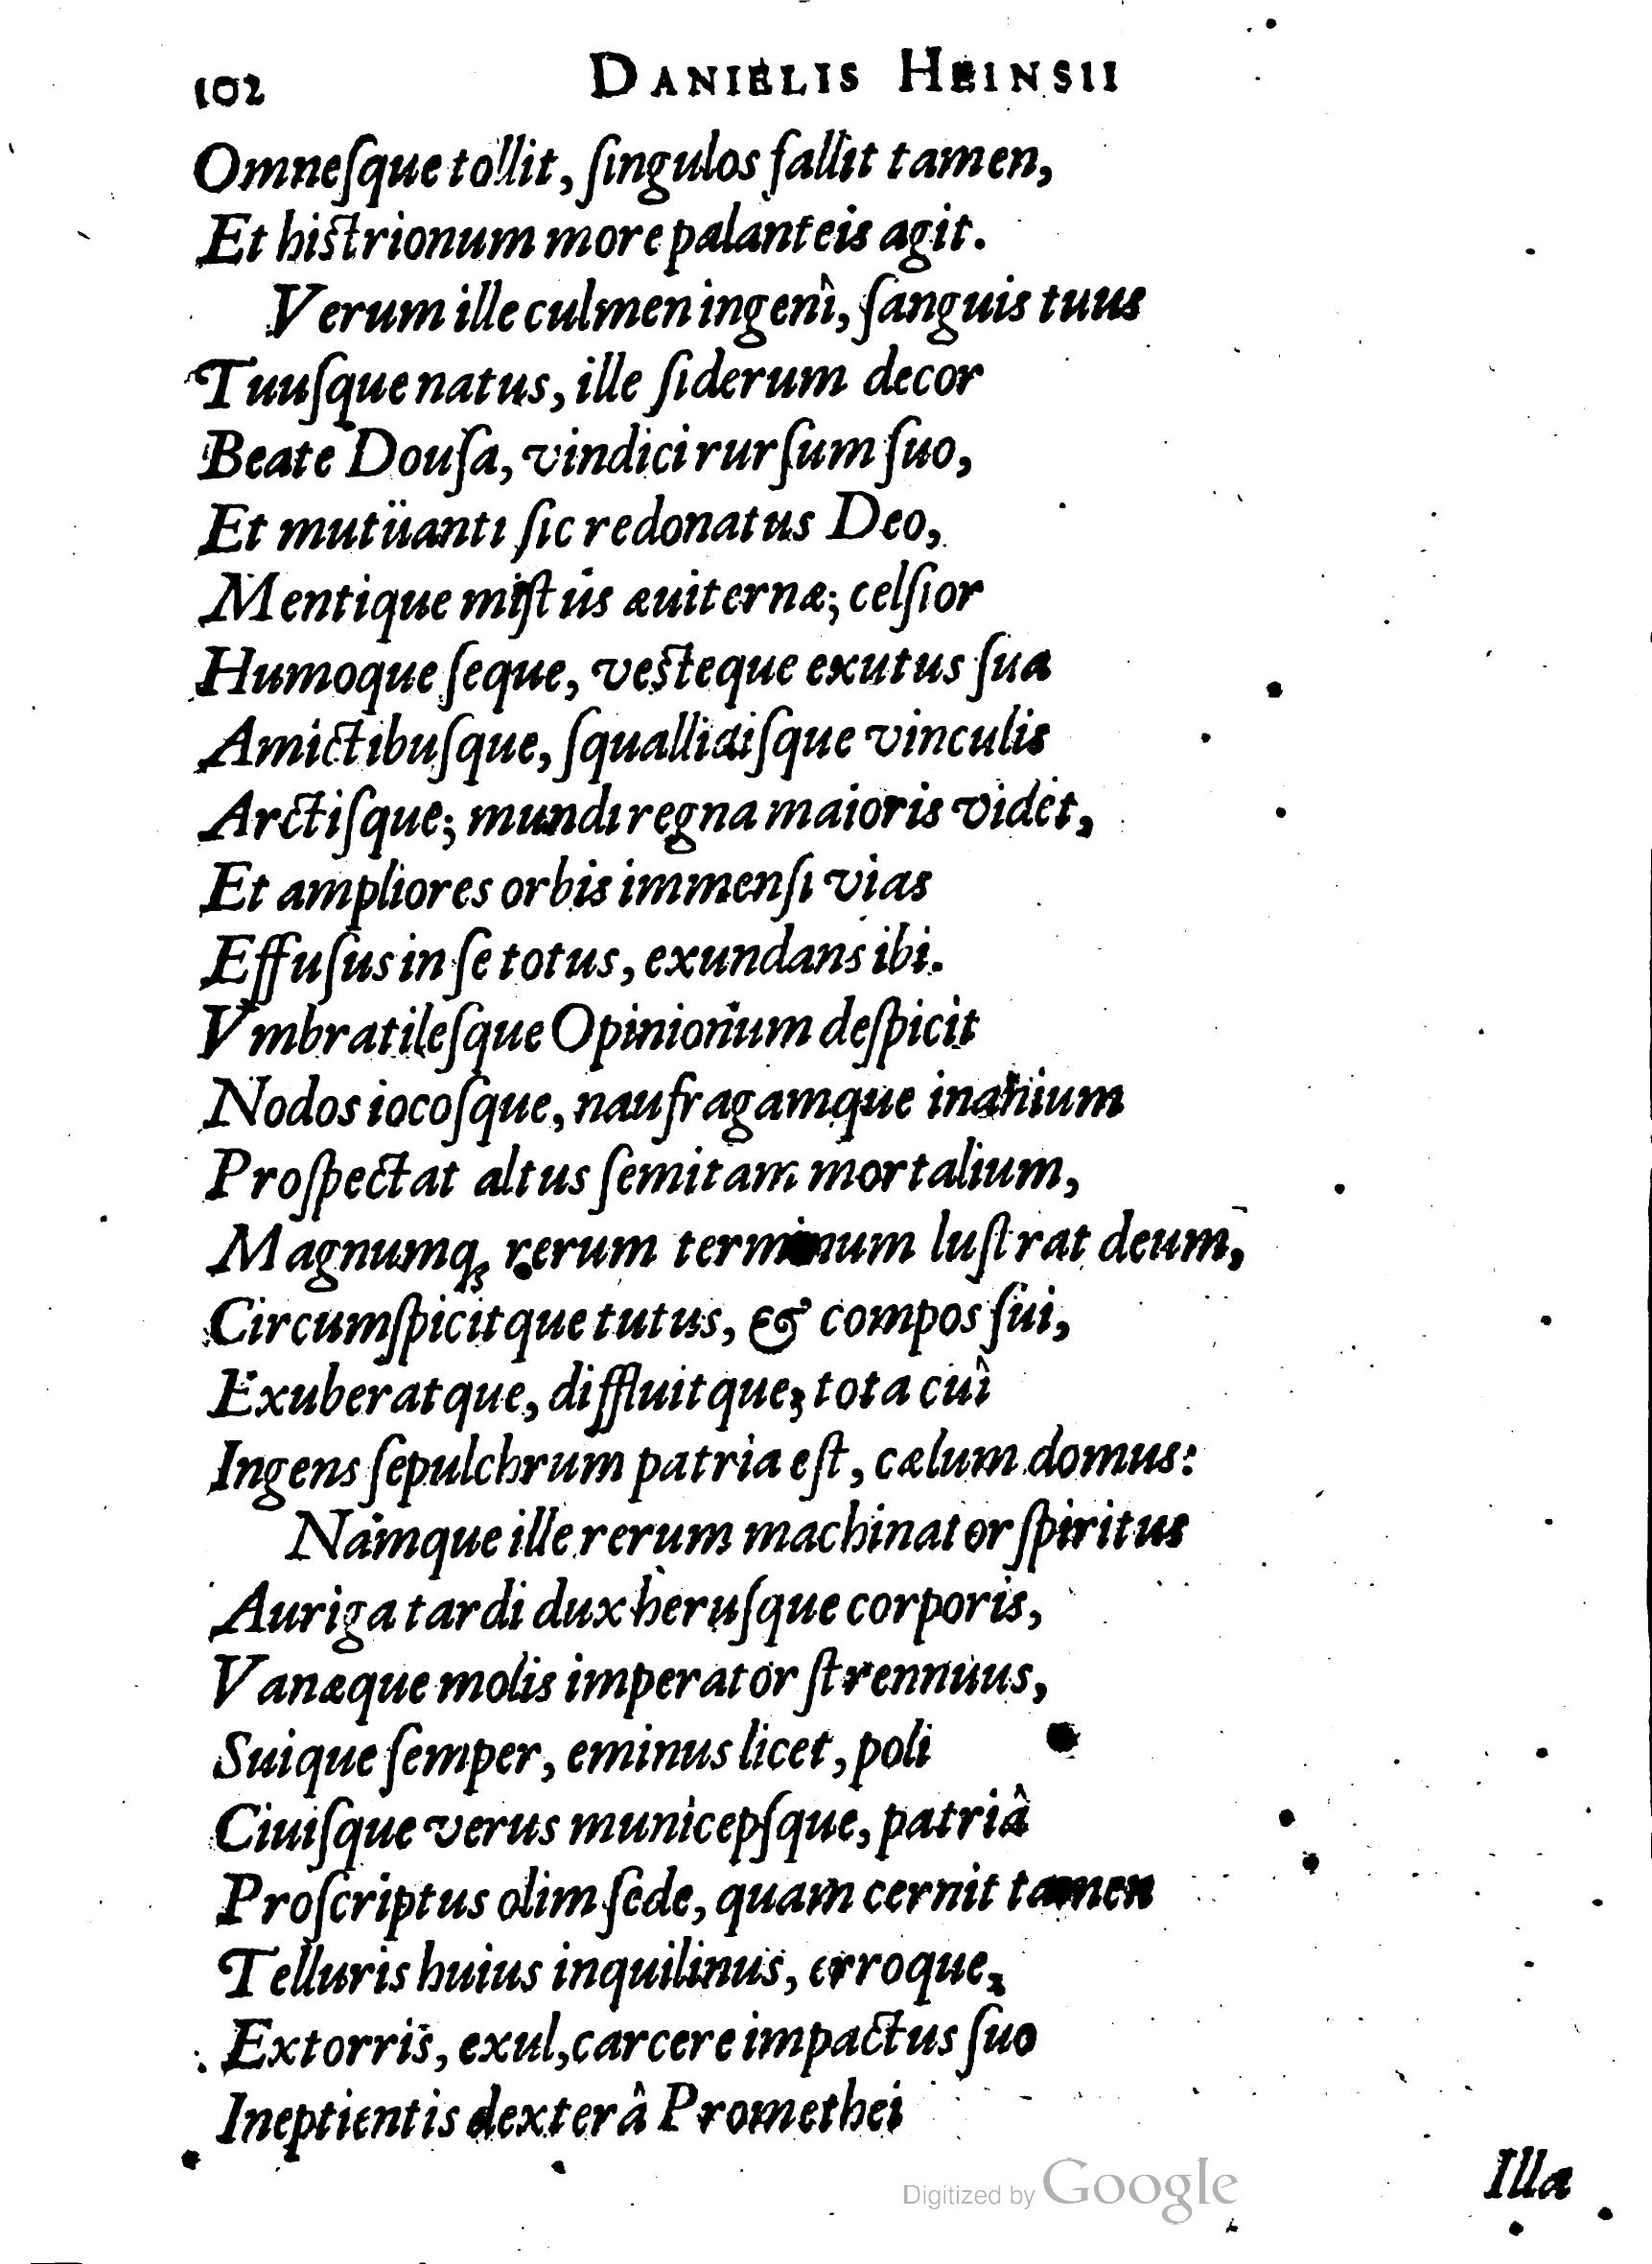 102 DANIELIS HEINSII
Omneſque tollit, ſingulos fallit tamen,
Et hiſtrionum more palanteis agit.
Verum ille culmen ingenî, ſanguis tuus
Tuuſque natus, ille ſiderum decor
Beate Douſa, vindici rurſum ſuo,
Et mutüanti ſic redonatus Deo,
Mentique miſtus æuiternæ; celſior
Humoque ſeque, veſteque exutus ſua
Amictibuſque, ſquallidiſque vinculis
Arctiſque; mundi regna maioris videt,
Et ampliores orbis immenſi vias
Effuſus in ſe totus, exundans ibi.
Vmbratileſque Opinionum deſpicit
Nodos iocoſque, naufragamque inanium
Proſpectat altus ſemitam mortalium,
Magnumq; rerum terminum luſtrat deum,
Circumſpicitque tutus, & compos ſui,
Exuberatque, diffluitque, tota cuî
Ingens ſepulchrum patria eſt, cælum domus:
Namque ille rerum machinator ſpiritus
Auriga tardi dux heruſque corporis,
Vanæque molis imperator ſtrennuus,
Suique ſemper, eminus licet, poli
Ciuiſque verus municepſque, patriâ
Proſcriptus olim ſede, quam cernit tamen
Telluris huius inquilinus, erroque,
Extorris, exul, carcere impactus ſuo
Ineptientis dexterâ Promethei
Illa
Digitized by Google